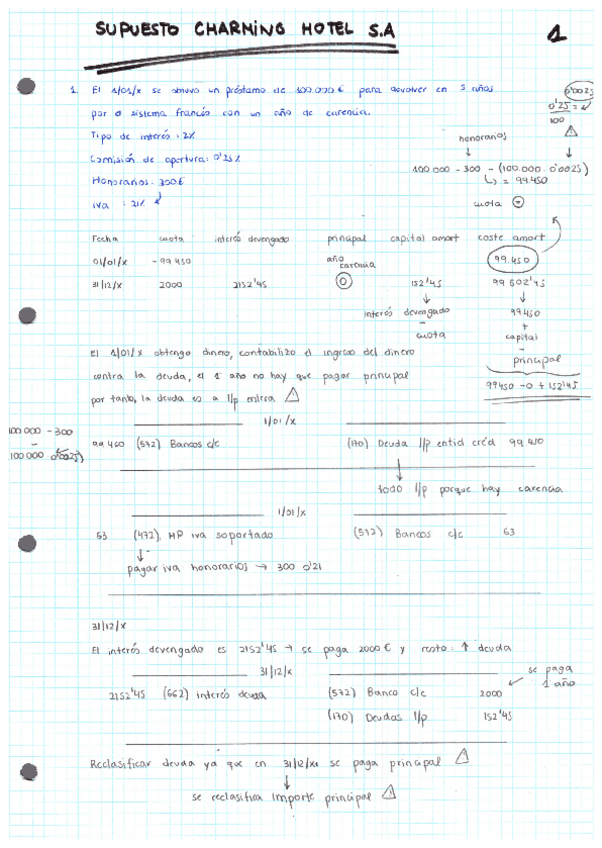 SUPUESTO CHARMING HOTEL S.A
1
1. El 1/01/x se obtuvo un préstamo de 100.000 € para devolver en 5 años
por el sistema francés con un año de carencia.
Tipo de interés: 2%
Comisión de apertura: 0'25%
Honorarios: 300€
iva : 21%
0'0025
0'25 =
100
honorarios
100.000 - 300 - (100.000 · 0'0025)
= 99.450
cuota
Fecha cuota interés devengado principal capital amort coste amort
01/01/x - 99.450 año carencia 99.450
31/12/x 2000 2152'45 0 152'45 99 602'45
interés devengado
-
cuota
99450
+
capital
-
principal
99450 - 0 + 152'45
El 1/01/x obtengo dinero, contabilizo el ingreso del dinero
contra la deuda, el 1 año no hay que pagar principal
por tanto, la deuda es a l/p entera
1/01/x
100.000 - 300
-
100 000 0'0025)
99 450 (572) Bancos c/c (170) Deuda l/p entid créd 99 450
todo l/p porque hay carencia
1/01/x
63 (472) HP iva soportado (572) Bancos c/c 63
pagar iva honorarios → 300 0'21
31/12/x
El interés devengado es 2152'45 → se paga 2000 € y resto: ↑ deuda
31/12/x
se paga
1 año
2152'45 (662) interés deuda (572) Banco c/c 2000
(170) Deudas l/p 152'45
Reclasificar deuda ya que en 31/12/x1 se paga principal
se reclasifica importe principal